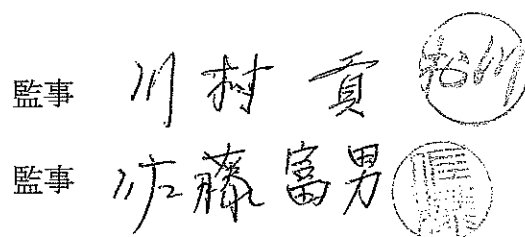 監事 川村 貢
監事 佐藤富男